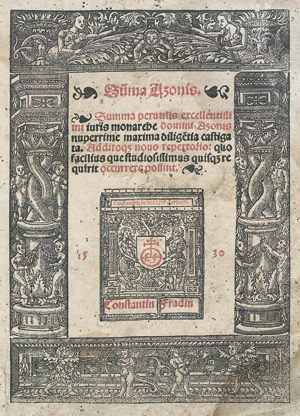 Sūma Azonis.
Summa perutilis excellentissi
mi iuris monarche domini Azonis
nuperrime maxima diligētia castiga
ta. Additoq3 nouo repertorio: quo
facilius que studiosissimus quisq3 re
quirit occurrere possint.
15 30
Constantin Fradin